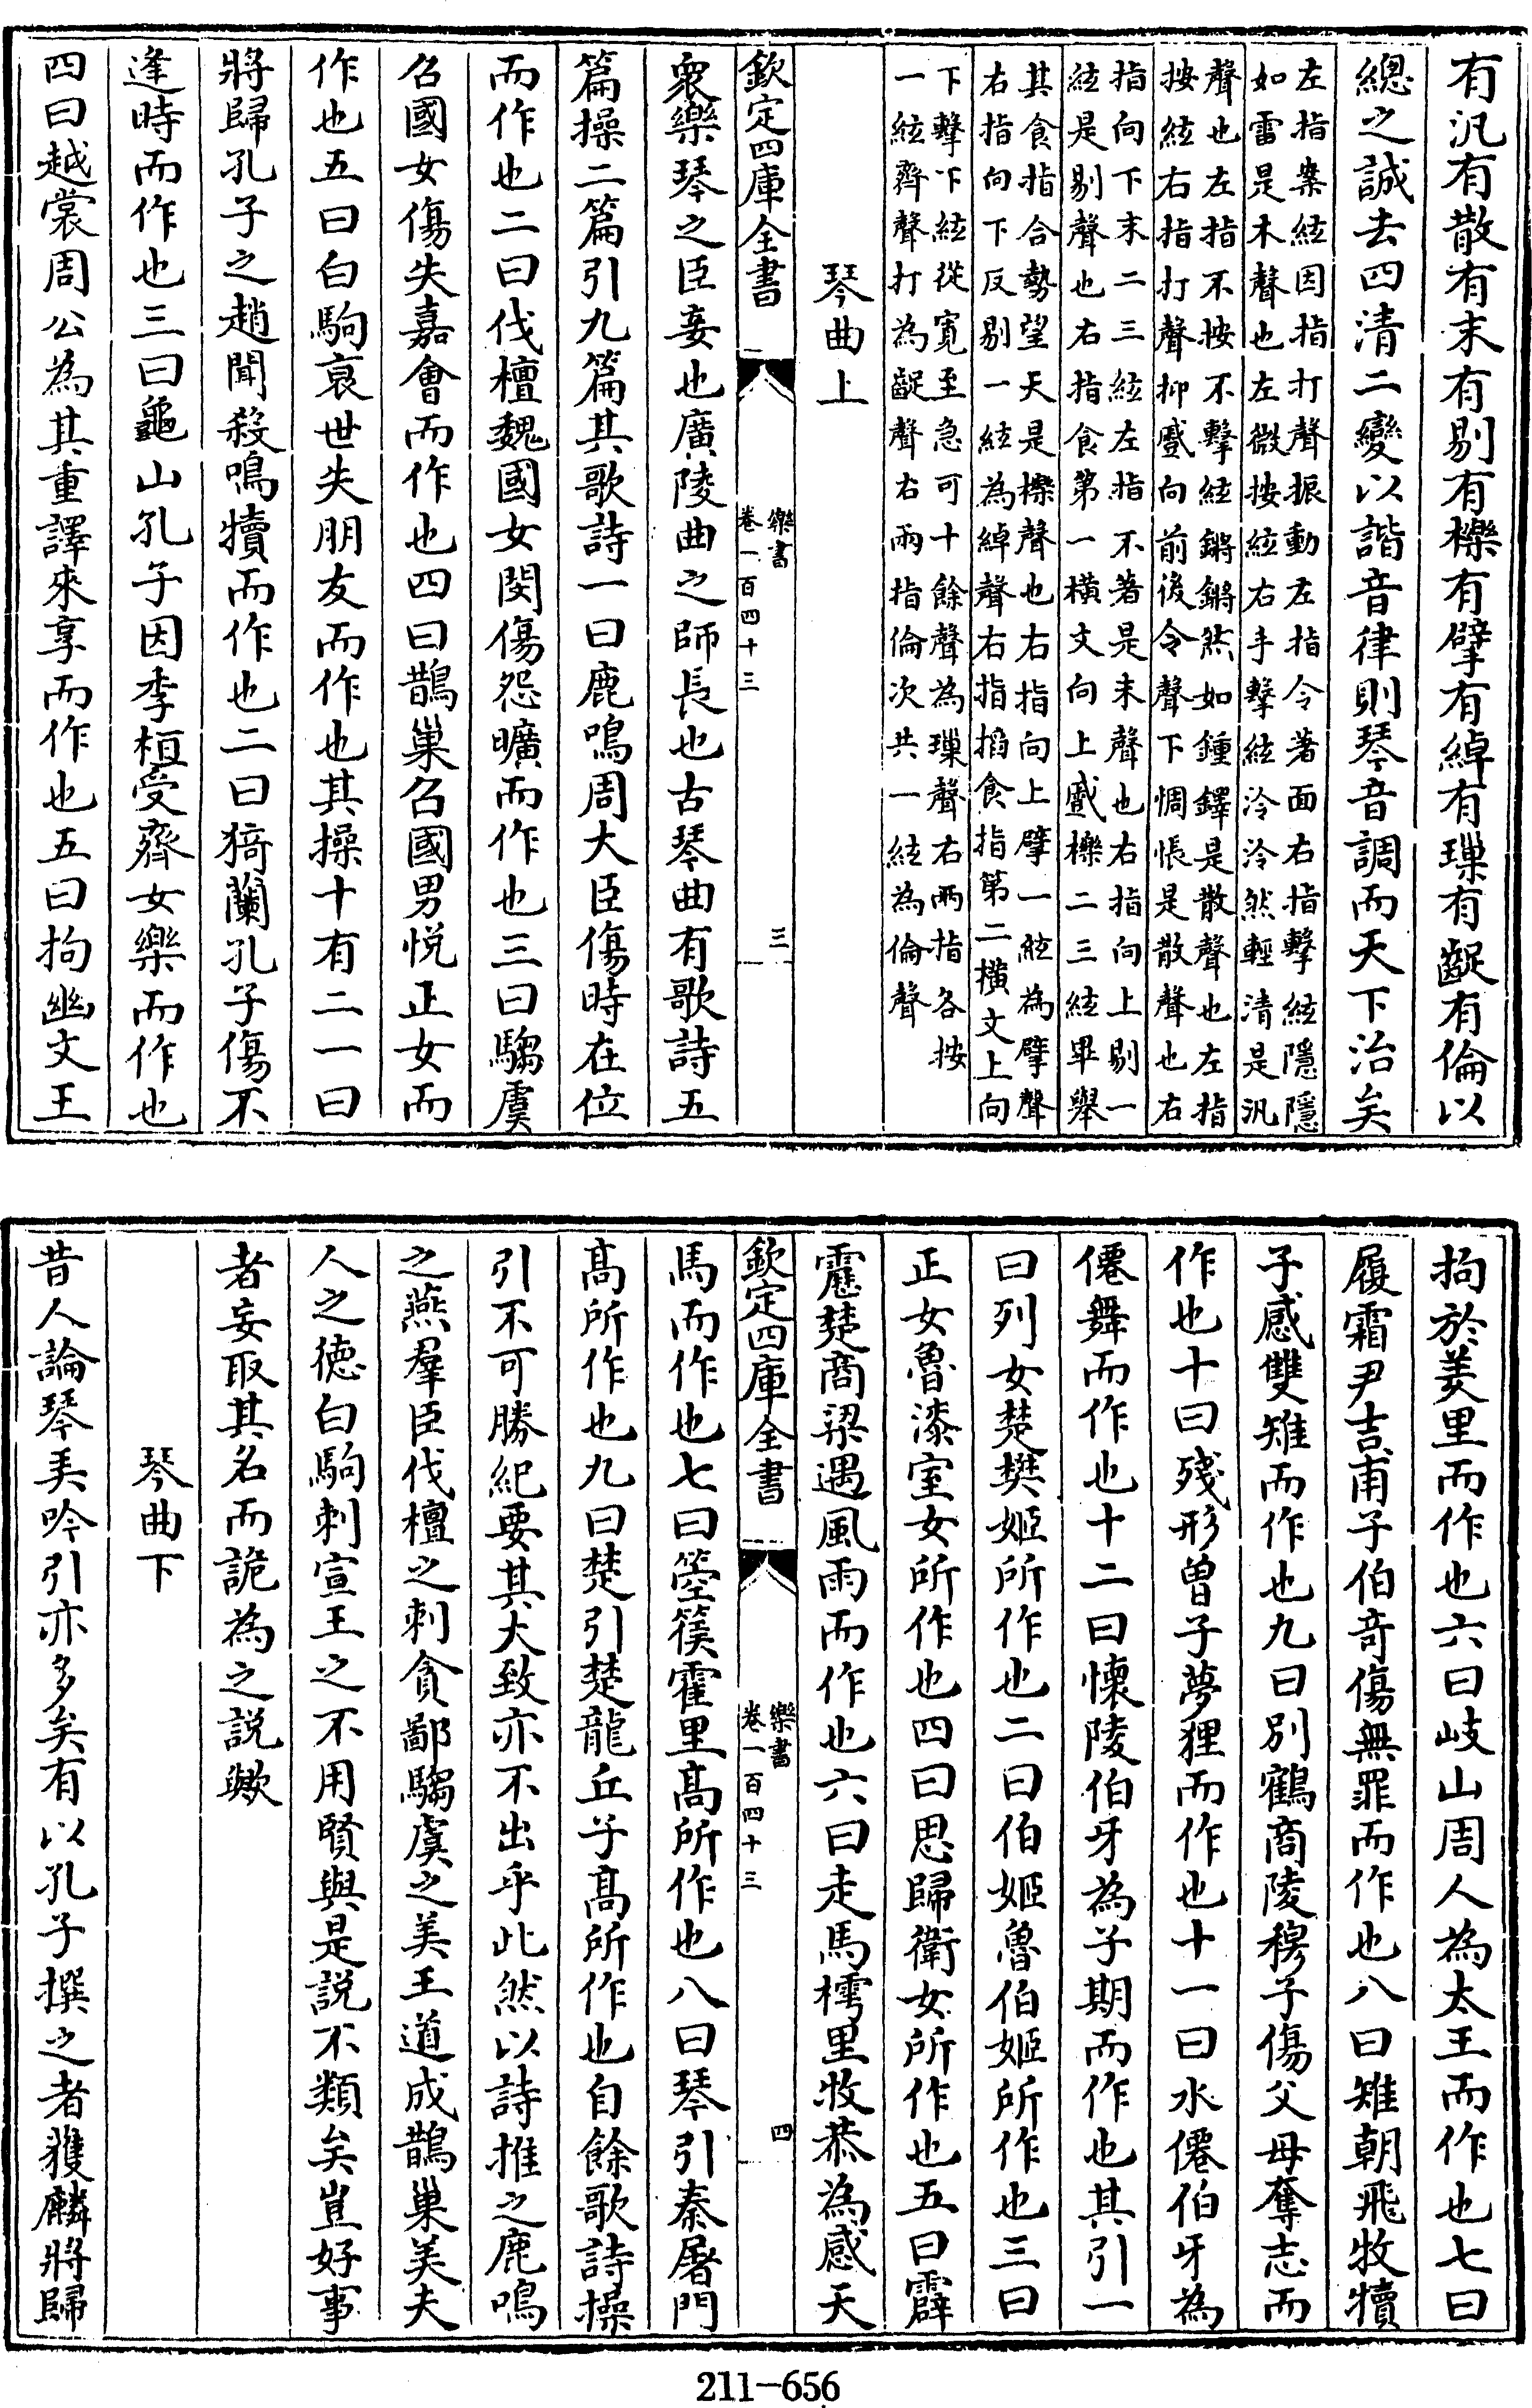 有汎有散有末有剔有擽有擘有綽有璅有齪有倫以
總之誠去四清二變以諧音律則琴音調而天下治矣
左指案絃因指打聲振動左指令著面右指擊絃隱隱
如雷是木聲也左微按絃右手擊絃泠泠然輕清是汎
聲也左指不按不擊絃鏘鏘然如鍾鐸是散聲也左指
按絃右指打聲抑蹙向前後令聲下惆悵是散聲也右
指向下末二三絃左指不著是末聲也右指向上剔一
絃是剔聲也右指食第一橫文向上蹙擽二三絃畢舉
其食指合勢望天是擽聲也右指向上擘一絃為擘聲
右指向下反剔一絃為綽聲右指搯食指第二橫文上向
下擊下絃從寬至急可十餘聲為璅聲右兩指各按
一絃齊聲打為齪聲右兩指倫次共一絃為倫聲
琴曲上
欽定四庫全書
樂書
卷一百四十三
三
衆樂琴之臣妾也廣陵曲之師長也古琴曲有歌詩五
篇操二篇引九篇其歌詩一曰鹿鳴周大臣傷時在位
而作也二曰伐檀魏國女閔傷怨曠而作也三曰騶虞
召國女傷失嘉會而作也四曰鵲巢召國男悅正女而
作也五曰白駒哀世失朋友而作也其操十有二一曰
將歸孔子之趙聞殺鳴犢而作也二曰猗蘭孔子傷不
逢時而作也三曰龜山孔子因季桓受齊女樂而作也
四曰越裳周公為其重譯來享而作也五曰拘幽文王
拘於羑里而作也六曰岐山周人為太王而作也七曰
履霜尹吉甫子伯奇傷無罪而作也八曰雉朝飛牧犢
子感雙雉而作也九曰別鶴商陵穆子傷父母奪志而
作也十曰殘形曾子夢狸而作也十一曰水僊伯牙為
僊舞而作也十二曰懷陵伯牙為子期而作也其引一
曰列女楚樊姬所作也二曰伯姬魯伯姬所作也三曰
正女魯漆室女所作也四曰思歸衛女所作也五曰霹
靂楚商梁遇風雨而作也六曰走馬樗里牧恭為感天
欽定四庫全書
樂書
卷一百四十三
四
馬而作也七曰箜篌霍里髙所作也八曰琴引秦屠門
髙所作也九曰楚引楚龍丘子髙所作也自餘歌詩操
引不可勝紀要其大致亦不出乎此然以詩推之鹿鳴
之燕羣臣伐檀之刺貪鄙騶虞之美王道成鵲巢美夫
人之德白駒刺宣王之不用賢與是説不類矣豈好事
者妄取其名而詭為之説歟
琴曲下
昔人論琴美吟引亦多矣有以孔子撰之者獲麟將歸
211-656